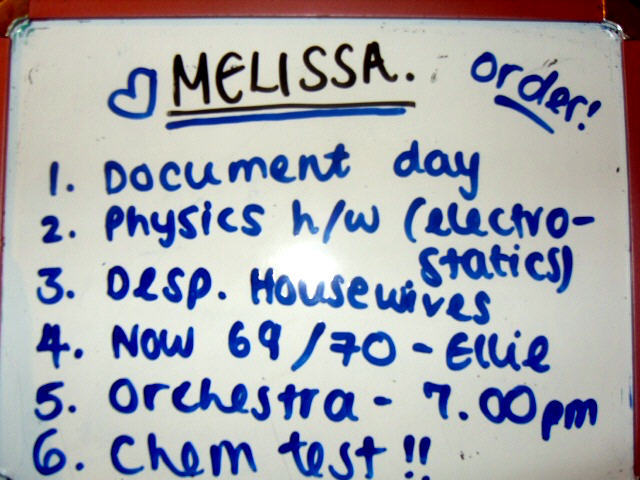 MELISSA.
order!
1. Document day
2. Physics h/w (electro-
statics)
3. Desp. Housewives
4. Now 69/70 - Ellie
5. Orchestra - 7.00pm
6. Chem test!!